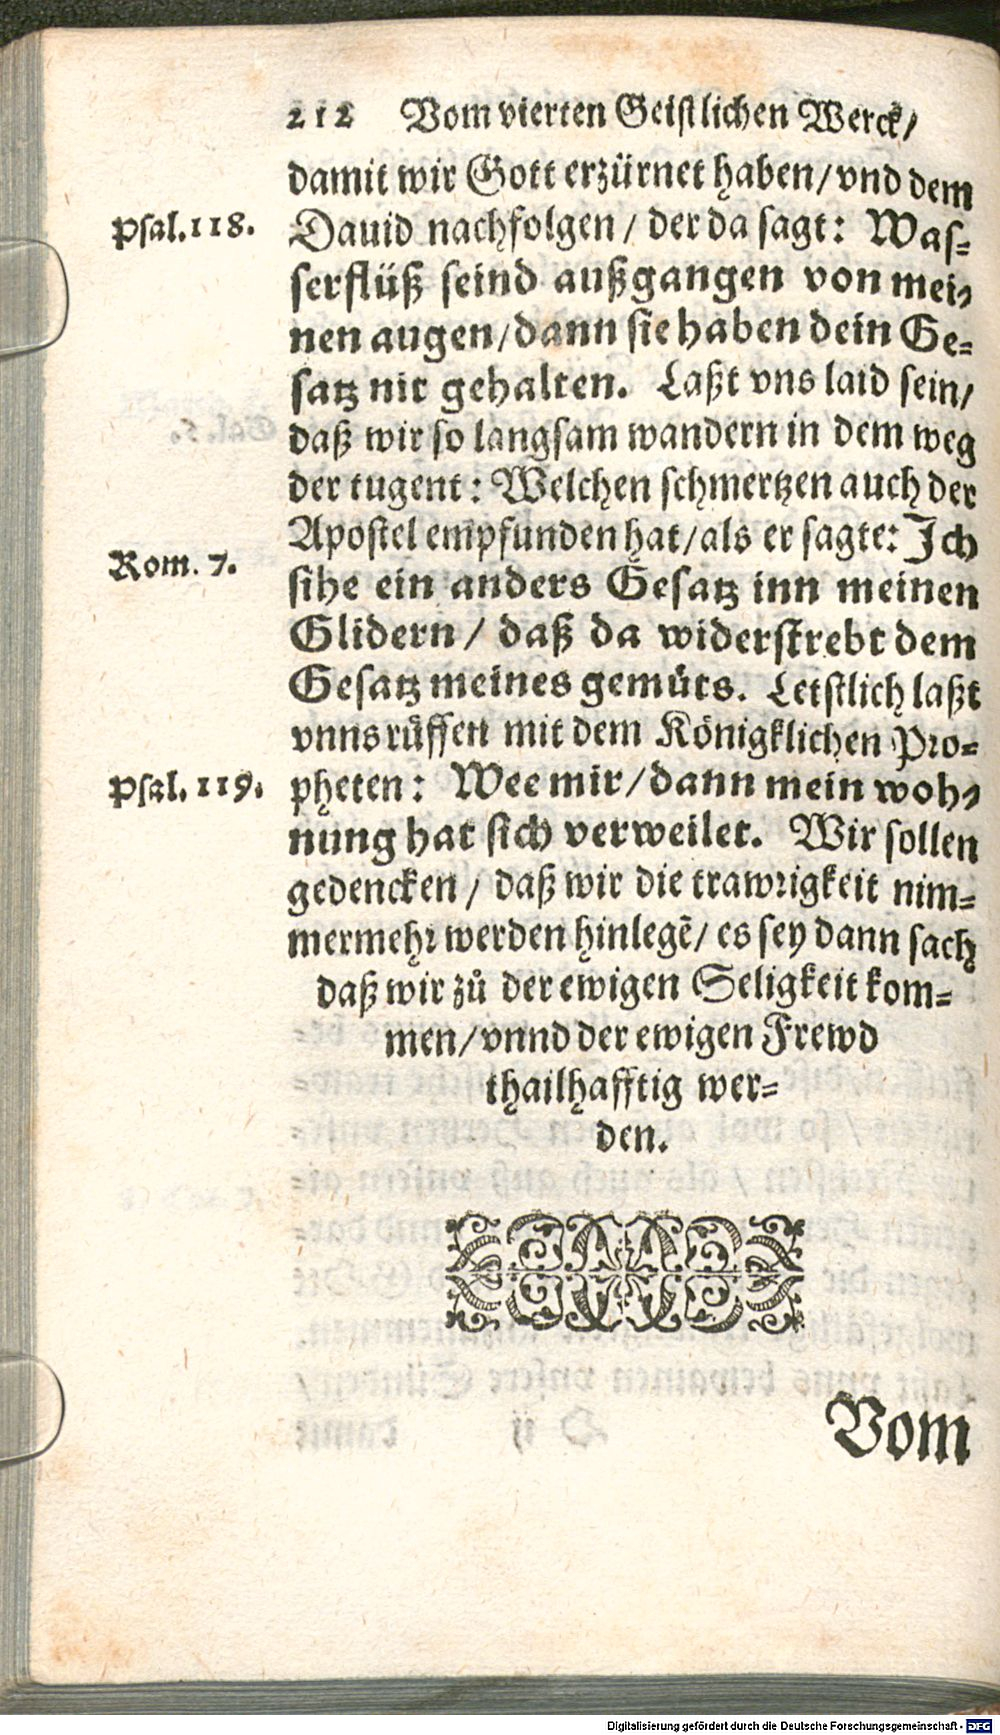 212 Vom vierten Geistlichen Werck/
damit wir Gott erzürnet haben/vnd dem
Psal.118.
Dauid nachfolgen/ der da sagt: Was-
serflüß seind außgangen von mei-
nen augen/dann sie haben dein Ge-
satz nit gehalten. Laßt vns laid sein/
daß wir so langsam wandern in dem weg
der tugent: Welchen schmertzen auch der
Apostel empfunden hat/als er sagte: Ich
Rom. 7.
sihe ein anders Gesatz inn meinen
Glidern/ daß da widerstrebt dem
Gesatz meines gemüts. Letstlich laßt
vnns rüffen mit dem Königklichen Pro-
Psal. 119.
pheten: Wee mir/dann mein woh-
nung hat sich verweilet. Wir sollen
gedencken/ daß wir die trawrigkeit nim-
mermehr werden hinlegẽ/ es sey dann sach
daß wir zů der ewigen Seligkeit kom-
men/vnnd der ewigen Frewd
thailhafftig wer-
den.
Vom
Digitalisierung gefördert durch die Deutsche Forschungsgemeinschaft - DFG